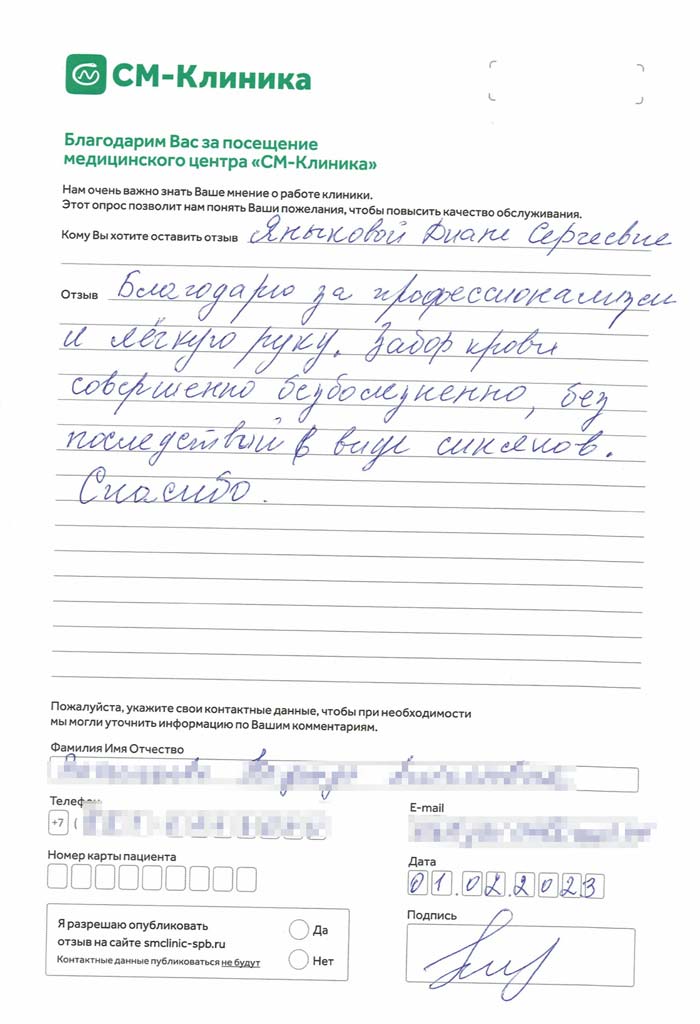 СМ-Клиника
Благодарим Вас за посещение
медицинского центра «СМ-Клиника»
Нам очень важно знать Ваше мнение о работе клиники.
Этот опрос позволит нам понять Ваши пожелания, чтобы повысить качество обслуживания.
Кому Вы хотите оставить отзыв Языковой Диане Сергеевне
Отзыв Благодарю за профессионализм
и лёгкую руку. Забор крови
совершенно безболезненно, без
последствий в виде синяков.
Спасибо.
Пожалуйста, укажите свои контактные данные, чтобы при необходимости
мы могли уточнить информацию по Вашим комментариям.
Фамилия Имя Отчество
Телефон
E-mail
+7 (
Номер карты пациента
Дата
01.02.2023
Подпись
Я разрешаю опубликовать
отзыв на сайте smclinic-spb.ru
Контактные данные публиковаться не будут
Да
Нет